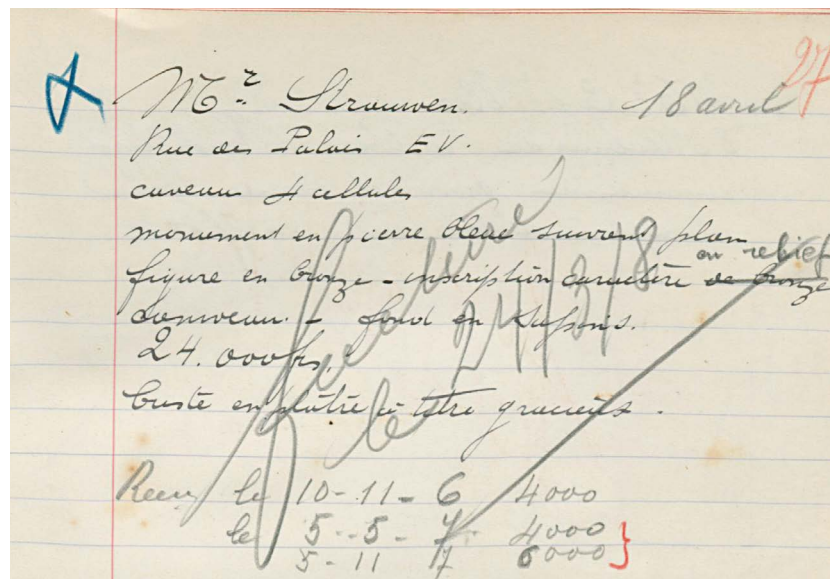 27
Mr Strouwen. 18 avril
Rue des Palais E V.
caveau 4 cellules
monument en pierre bleue suivant plan
en relief
figure en bronze - inscription caractère de bronze
fond en
24.000 frs.
buste en plâtre à titre gracieux.
facturé
le 24/3/8
Recu le 10-11-6 4000
le 5-5-7 4000
5-11 17 6000